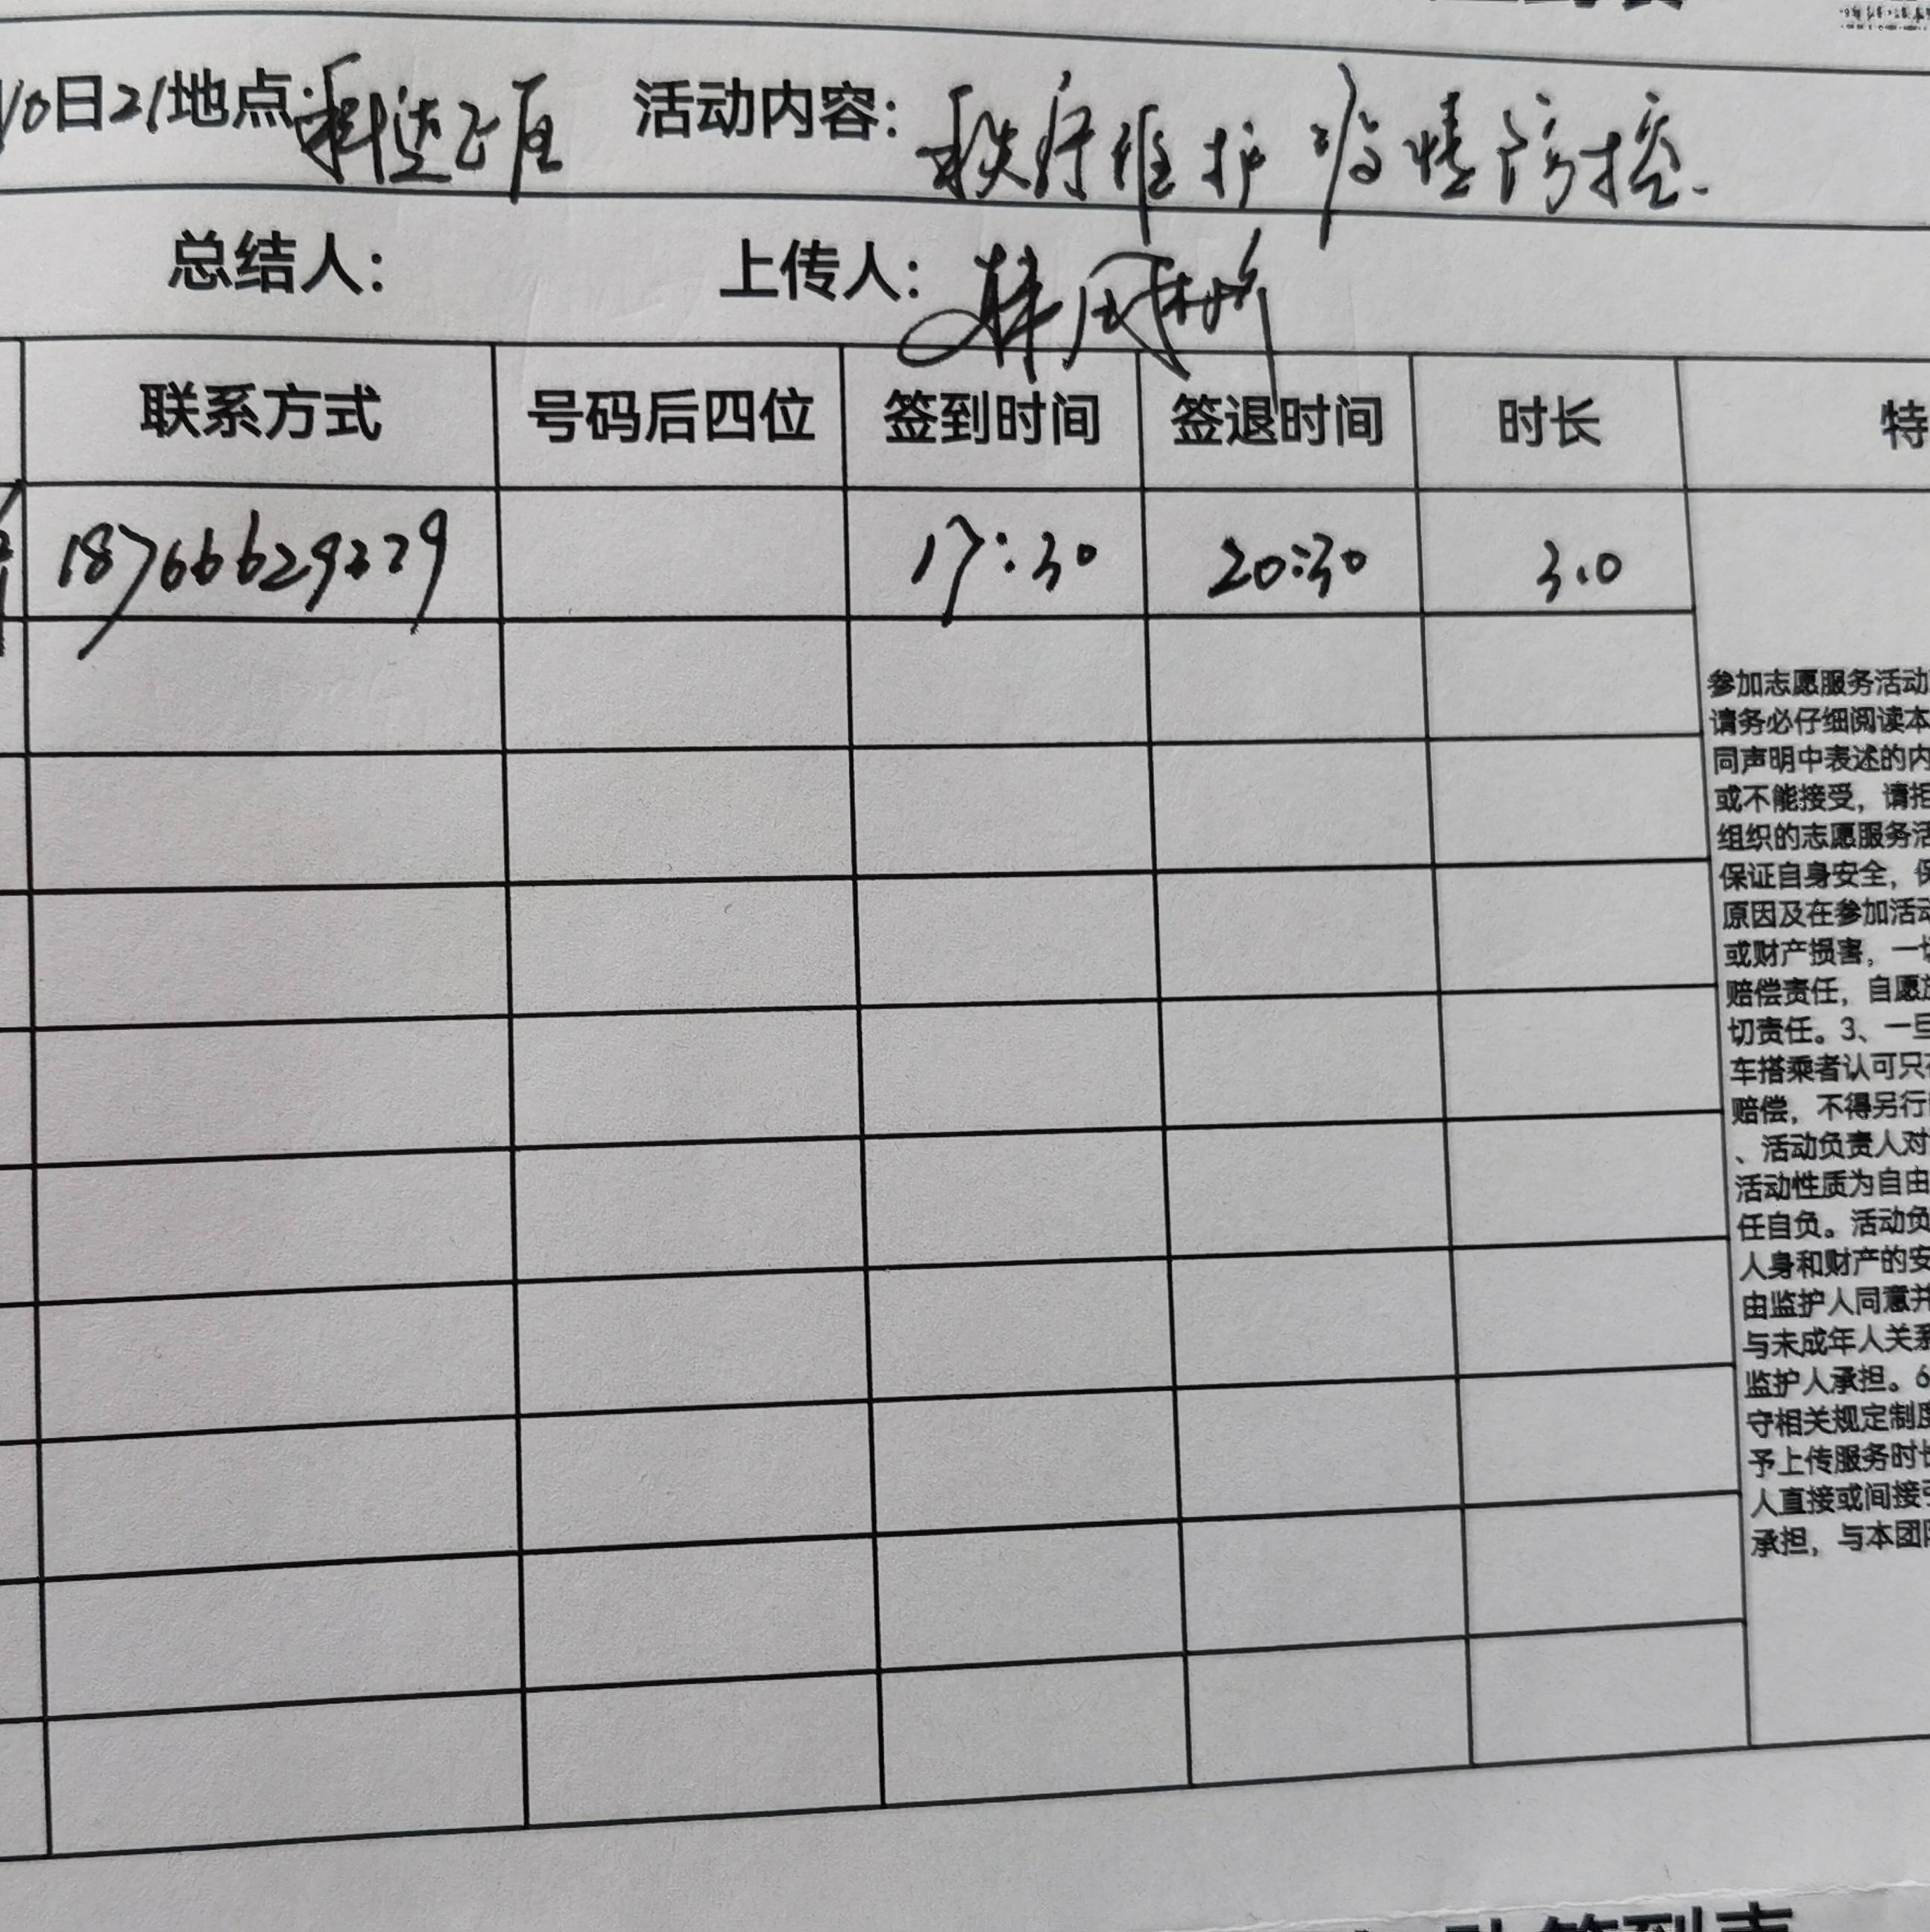 10日21地点:科达正垣 活动内容:秩序维护 疫情防控.
总结人: 上传人:
联系方式 号码后四位 签到时间 签退时间 时长 特
18766629229 17:30 20:30 3.0
参加志愿服务活动
请务必仔细阅读本
同声明中表述的内
或不能接受，请拒
组织的志愿服务活
保证自身安全，保
原因及在参加活动
或财产损害，一切
赔偿责任，自愿放
切责任。3、一旦
车搭乘者认可只在
赔偿，不得另行
、活动负责人对
活动性质为自由
任自负。活动负
人身和财产的安
由监护人同意并
与未成年人关系
监护人承担。6
守相关规定制度
予上传服务时长
人直接或间接引
承担，与本团队
签到表